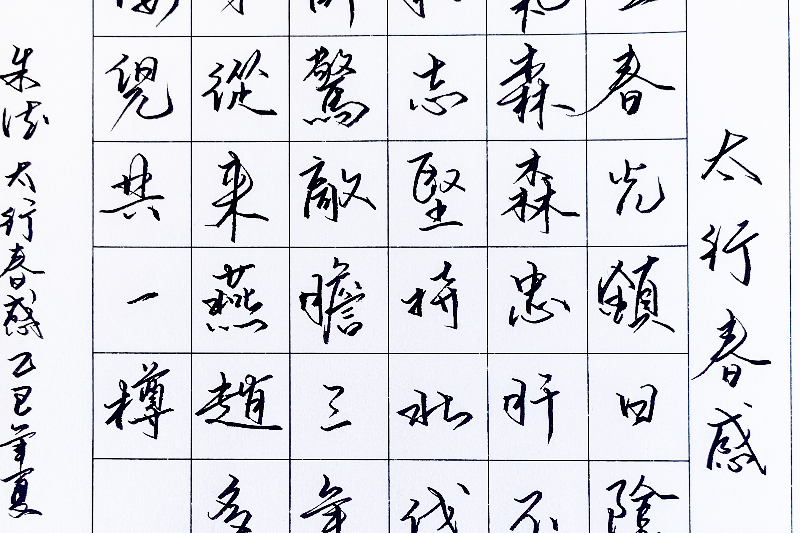 太行春感
春光鎮日陰
森森忠肝不
志堅持北伐
驚敵膽三年
從来燕趙多
兒共一樽
朱德太行春感乙巳年夏